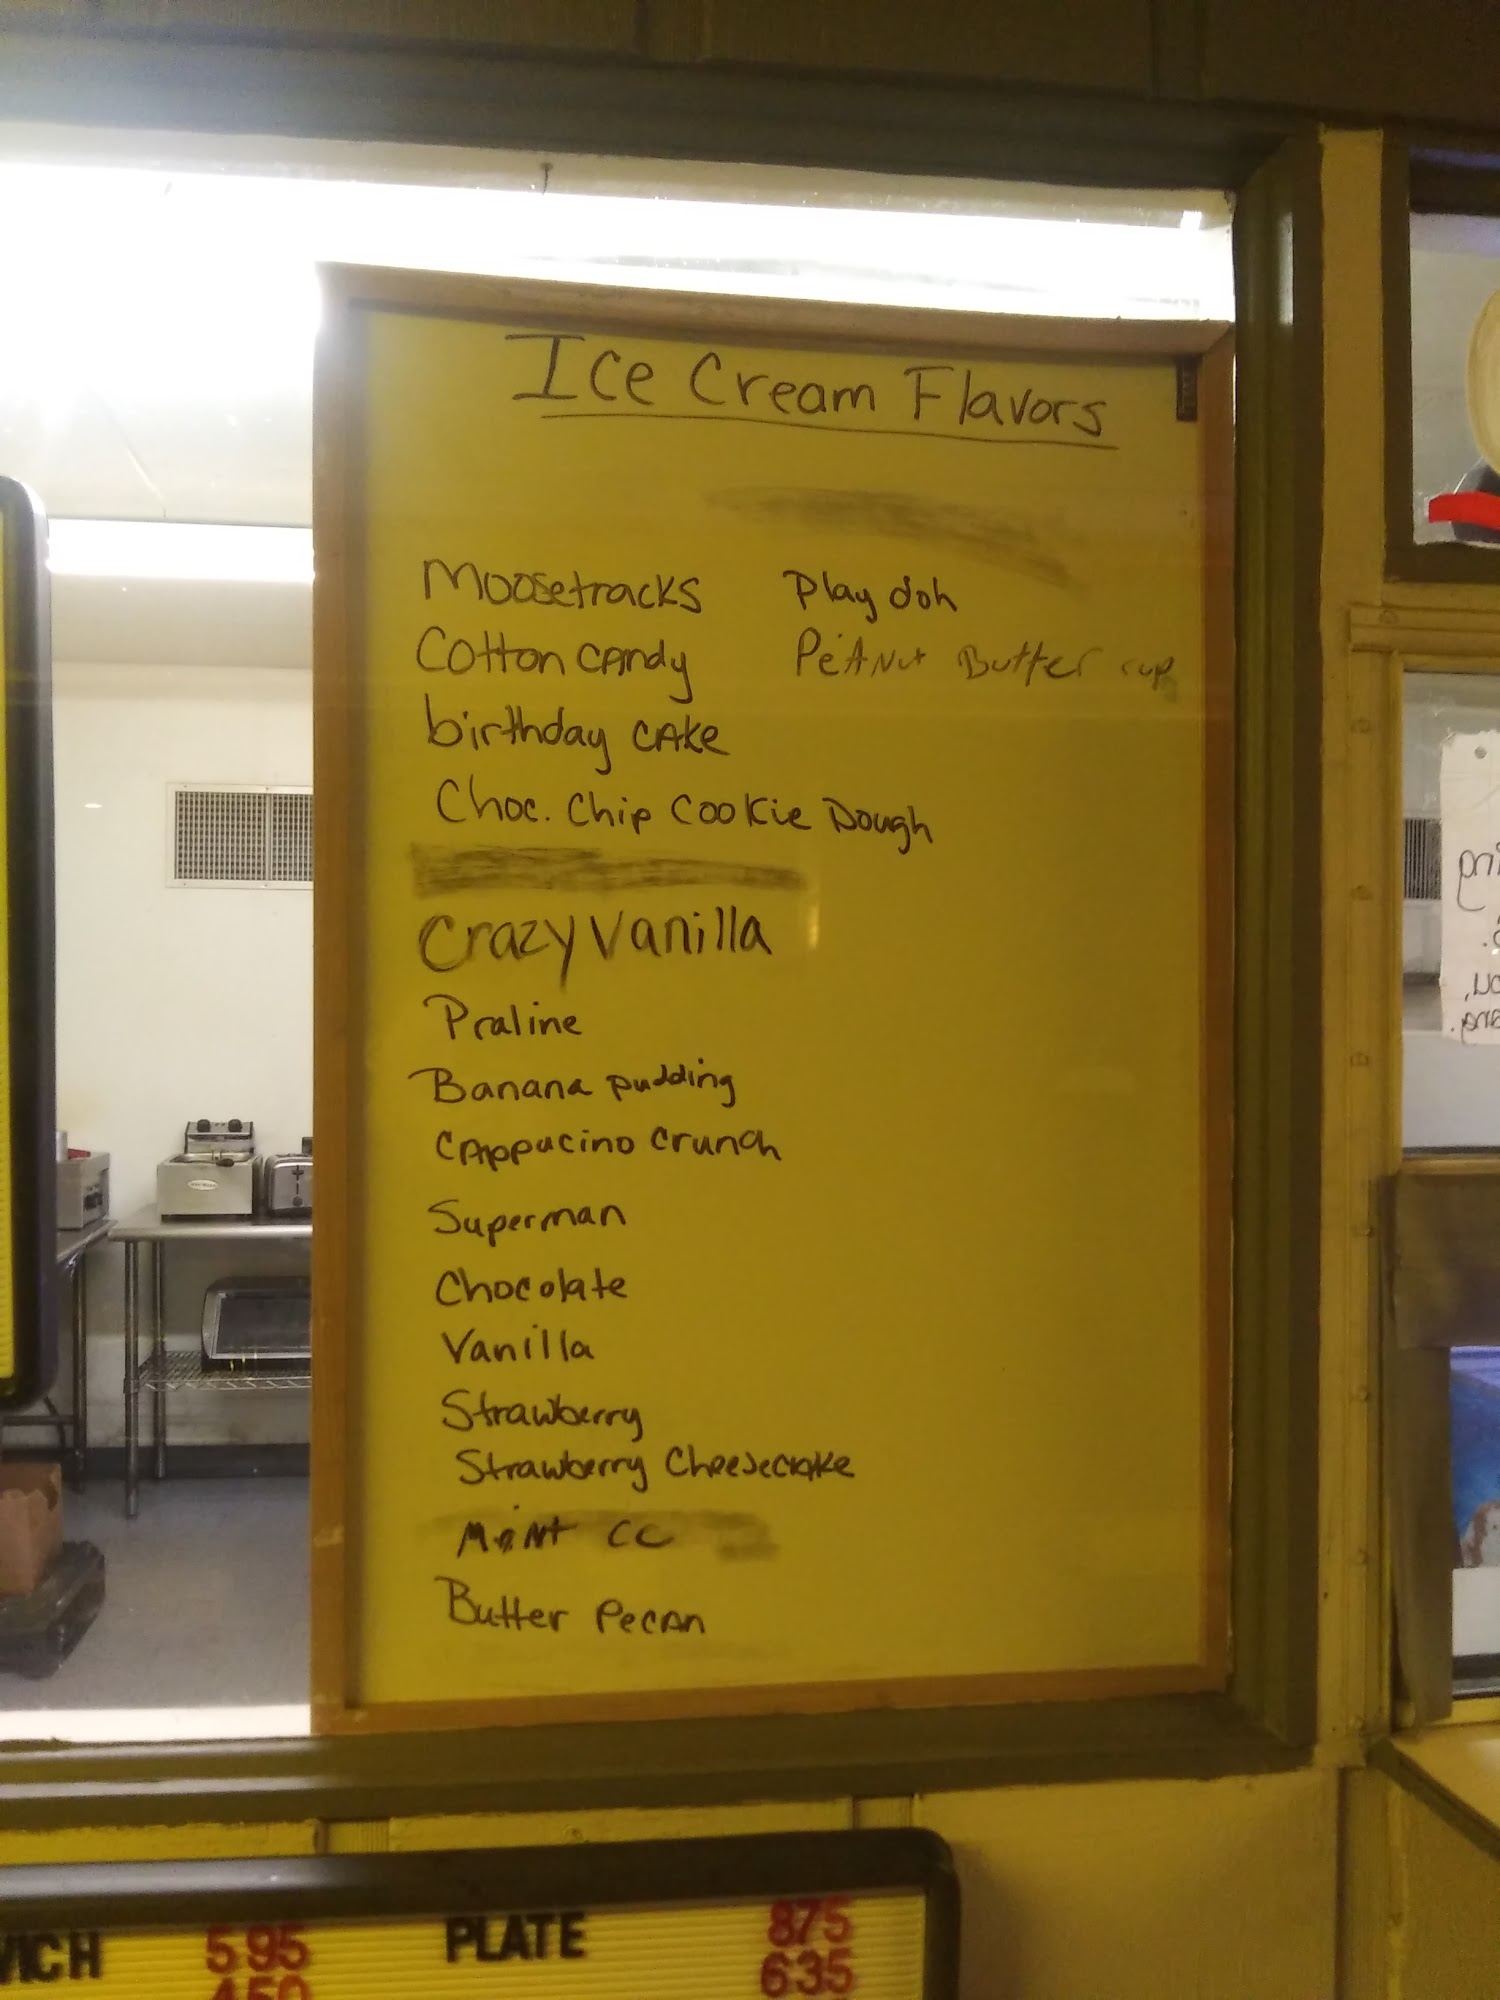 Ice Cream Flavors
Moosetracks
Cotton candy
birthday cake
Choc. Chip Cookie Dough
Crazy Vanilla
Praline
Banana pudding
Cappucino crunch
Superman
Chocolate
Vanilla
Strawberry
Strawberry Cheesecake
Mint CC
Butter Pecan
Play doh
Peanut Butter cup
WICH 5.95 PLATE 875
4.50 635